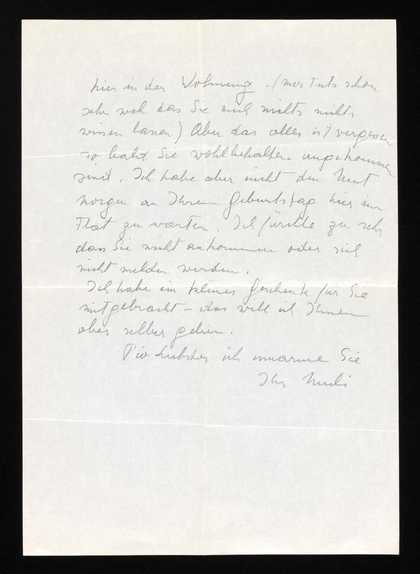 hier in der Wohnung. (mir tuts schon
sehr weh das Sie mich nichts
wissen lassen) Aber das alles ist vergessen
so bald Sie wohlbehalten angekommen
sind. Ich habe aber nicht den Mut
morgen an Ihrem Geburtstag hier im
zu warten. Ich fürchte zu sehr
dass Sie nicht ankommen oder sich
nicht melden werden.
Ich habe ein kleines Geschenk für Sie
mitgebracht – das will ich Ihnen
aber selber geben.
ich umarme Sie
Ihr